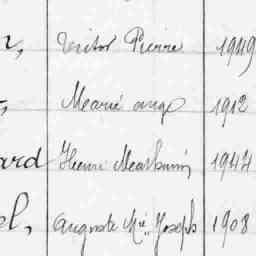 n, Victor Pierre 1949
, Marie ange 1912
ard Henri Mathurin 1944
el, Auguste Mie Joseph 1908